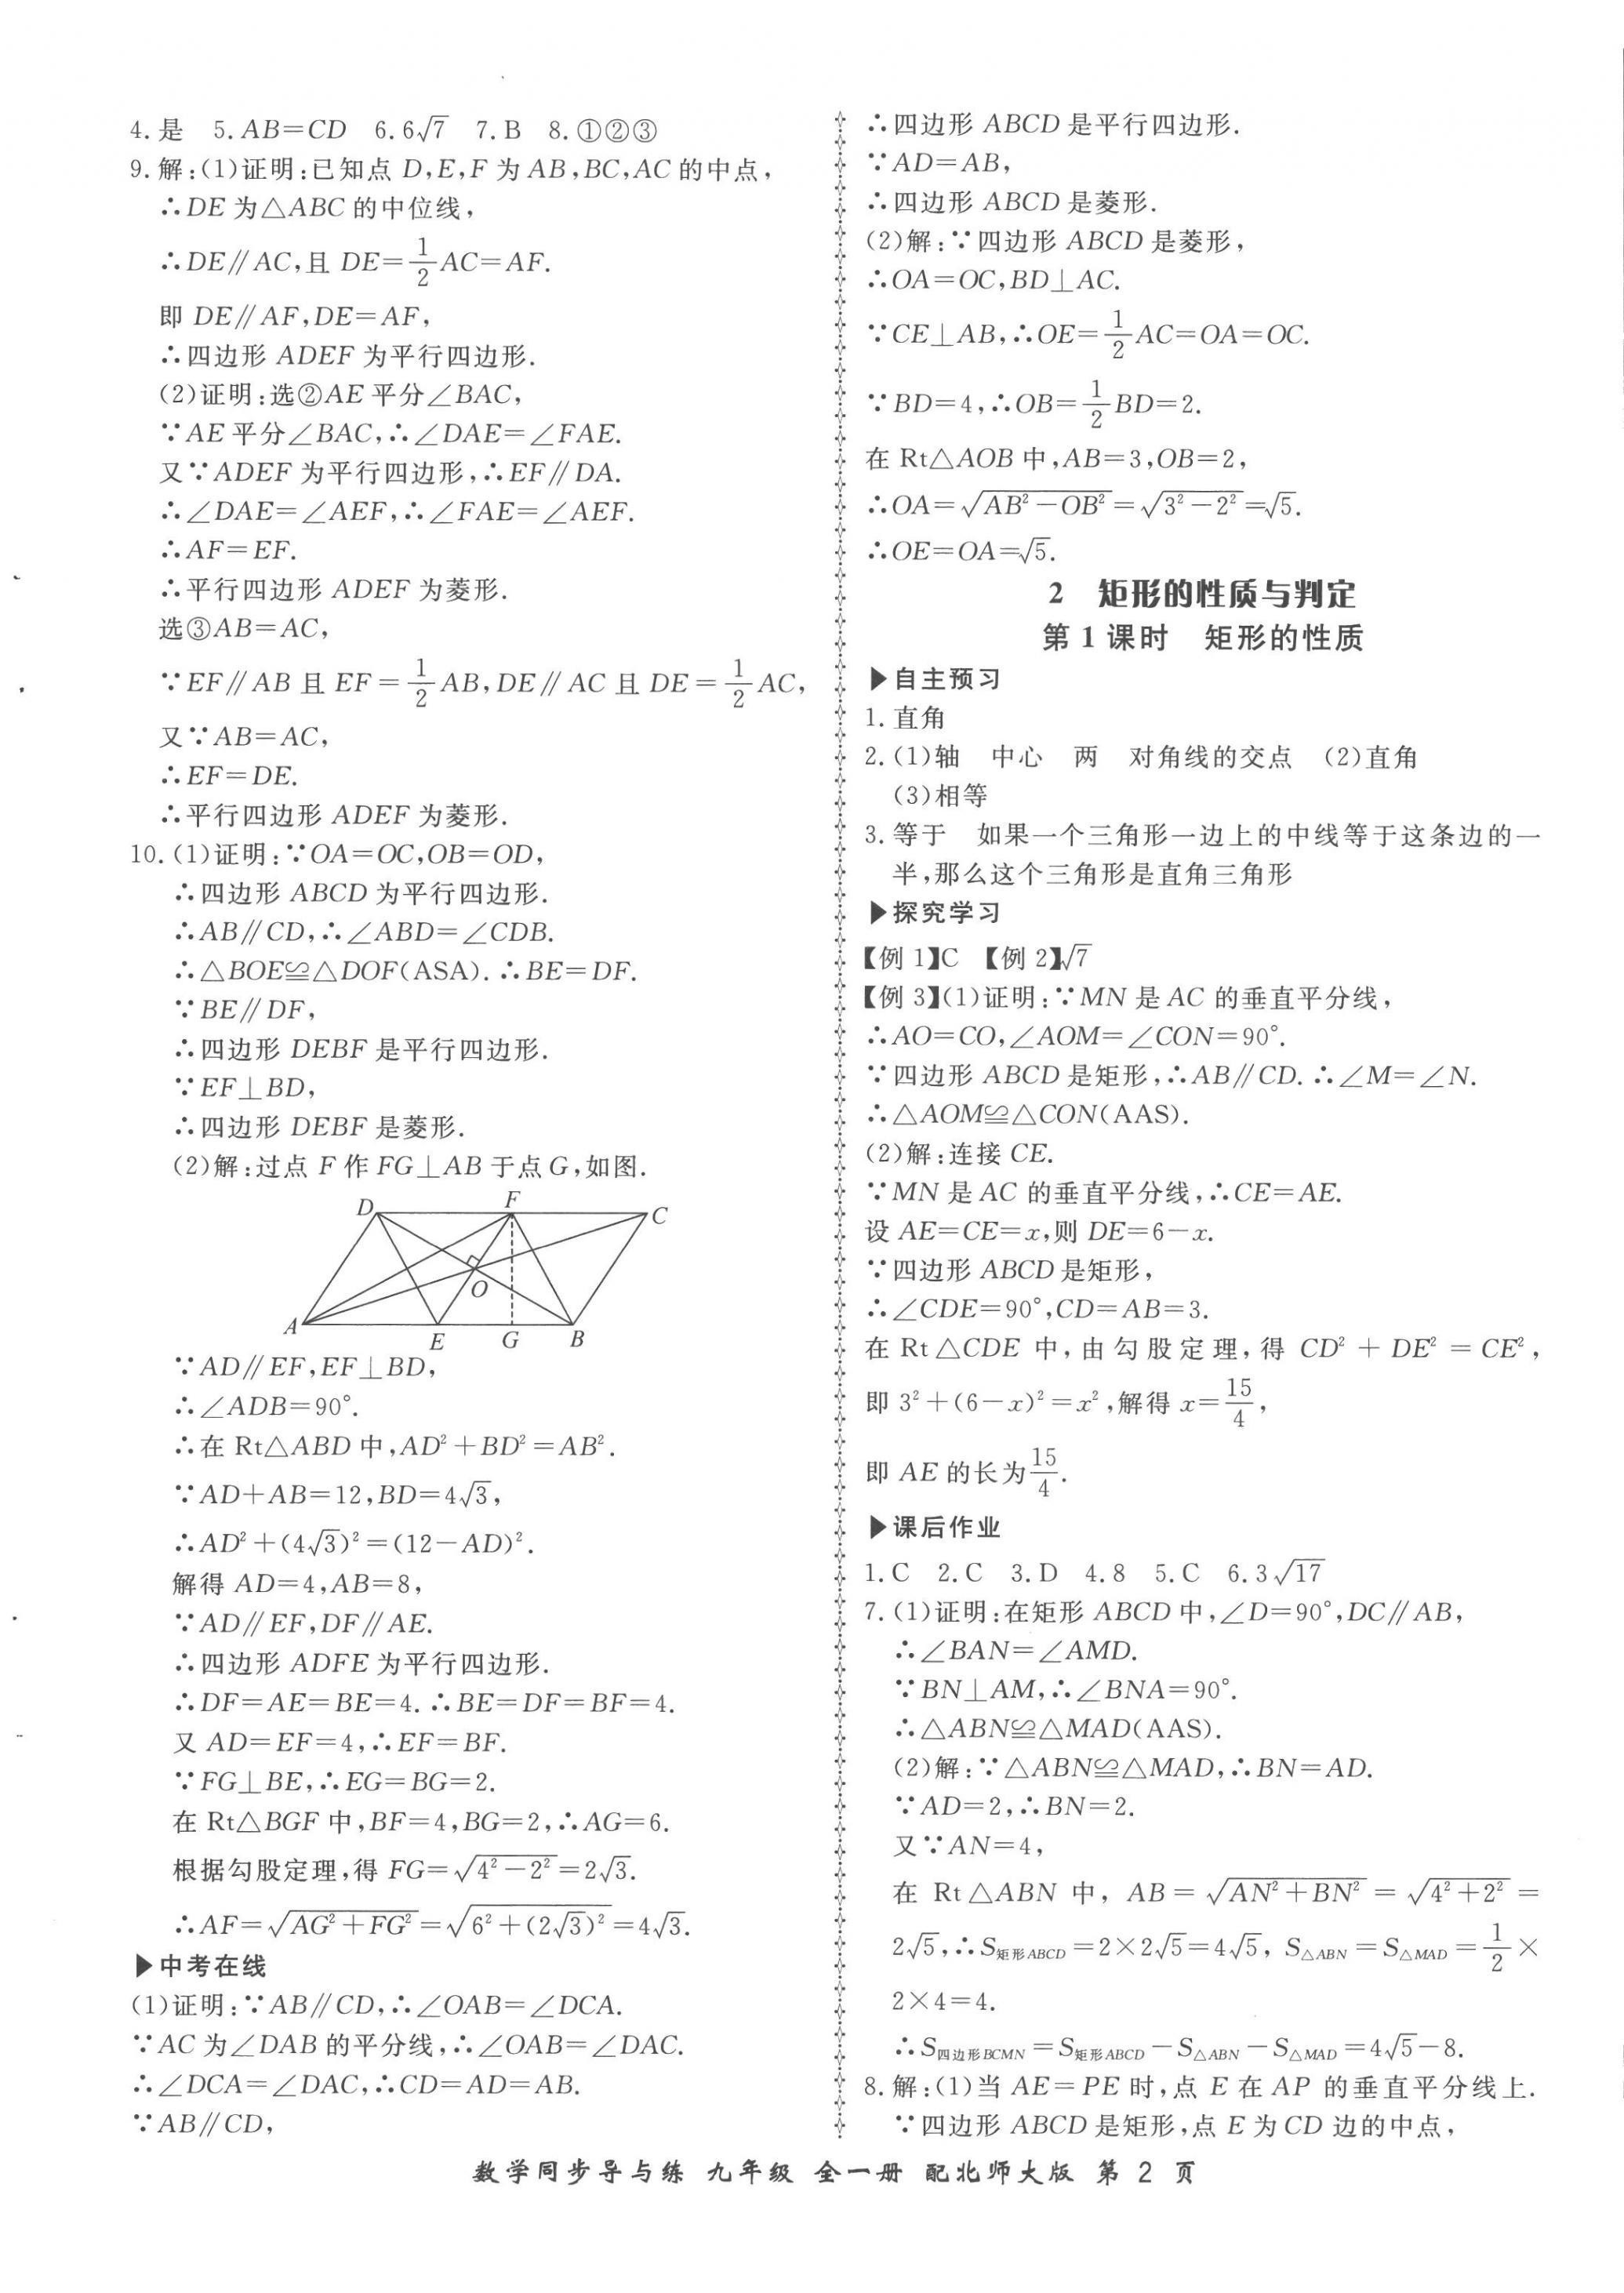 4. 是　5. AB=CD　6. 6√7　7. B　8. ①②③
9. 解:(1)证明:已知点 D,E,F 为 AB,BC,AC 的中点,
∴DE 为△ABC 的中位线,
∴DE∥AC,且 DE=1/2AC=AF.
即 DE∥AF,DE=AF,
∴四边形 ADEF 为平行四边形.
(2)证明:选②AE 平分∠BAC,
∵AE 平分∠BAC,∴∠DAE=∠FAE.
又∵ADEF 为平行四边形,∴EF∥DA.
∴∠DAE=∠AEF,∴∠FAE=∠AEF.
∴AF=EF.
∴平行四边形 ADEF 为菱形.
选③AB=AC,
∵EF∥AB 且 EF=1/2AB,DE∥AC 且 DE=1/2AC,
又∵AB=AC,
∴EF=DE.
∴平行四边形 ADEF 为菱形.
10. (1)证明:∵OA=OC,OB=OD,
∴四边形 ABCD 为平行四边形.
∴AB∥CD,∴∠ABD=∠CDB.
∴△BOE≌△DOF(ASA).∴BE=DF.
∵BE∥DF,
∴四边形 DEBF 是平行四边形.
∵EF⊥BD,
∴四边形 DEBF 是菱形.
(2)解:过点 F 作 FG⊥AB 于点 G,如图.
D F C
O
A E G B
∵AD∥EF,EF⊥BD,
∴∠ADB=90°.
∴在 Rt△ABD 中,AD²+BD²=AB².
∵AD+AB=12,BD=4√3,
∴AD²+(4√3)²=(12-AD)².
解得 AD=4,AB=8,
∵AD∥EF,DF∥AE.
∴四边形 ADFE 为平行四边形.
∴DF=AE=BE=4.∴BE=DF=BF=4.
又 AD=EF=4,∴EF=BF.
∵FG⊥BE,∴EG=BG=2.
在 Rt△BGF 中,BF=4,BG=2,∴AG=6.
根据勾股定理,得 FG=√(4²-2²)=2√3.
∴AF=√(AG²+FG²)=√(6²+(2√3)²)=4√3.
▶中考在线
(1)证明:∵AB∥CD,∴∠OAB=∠DCA.
∵AC 为∠DAB 的平分线,∴∠OAB=∠DAC.
∴∠DCA=∠DAC,∴CD=AD=AB.
∵AB∥CD,
∴四边形 ABCD 是平行四边形.
∵AD=AB,
∴四边形 ABCD 是菱形.
(2)解:∵四边形 ABCD 是菱形,
∴OA=OC,BD⊥AC.
∵CE⊥AB,∴OE=1/2AC=OA=OC.
∵BD=4,∴OB=1/2BD=2.
在 Rt△AOB 中,AB=3,OB=2,
∴OA=√(AB²-OB²)=√(3²-2²)=√5.
∴OE=OA=√5.
2　矩形的性质与判定
第 1 课时　矩形的性质
▶自主预习
1. 直角
2. (1)轴　中心　两　对角线的交点　(2)直角
(3)相等
3. 等于　如果一个三角形一边上的中线等于这条边的一
半,那么这个三角形是直角三角形
▶探究学习
【例 1】C　【例 2】√7
【例 3】(1)证明:∵MN 是 AC 的垂直平分线,
∴AO=CO,∠AOM=∠CON=90°.
∵四边形 ABCD 是矩形,∴AB∥CD.∴∠M=∠N.
∴△AOM≌△CON(AAS).
(2)解:连接 CE.
∵MN 是 AC 的垂直平分线,∴CE=AE.
设 AE=CE=x,则 DE=6-x.
∵四边形 ABCD 是矩形,
∴∠CDE=90°,CD=AB=3.
在 Rt△CDE 中,由勾股定理,得 CD²+DE²=CE²,
即 3²+(6-x)²=x²,解得 x=15/4,
即 AE 的长为15/4.
▶课后作业
1. C　2. C　3. D　4. 8　5. C　6. 3√17
7. (1)证明:在矩形 ABCD 中,∠D=90°,DC∥AB,
∴∠BAN=∠AMD.
∵BN⊥AM,∴∠BNA=90°.
∴△ABN≌△MAD(AAS).
(2)解:∵△ABN≌△MAD,∴BN=AD.
∵AD=2,∴BN=2.
又∵AN=4,
在 Rt△ABN 中,AB=√(AN²+BN²)=√(4²+2²)=
2√5,∴S矩形ABCD=2×2√5=4√5,S△ABN=S△MAD=1/2×
2×4=4.
∴S四边形BCMN=S矩形ABCD-S△ABN-S△MAD=4√5-8.
8. 解:(1)当 AE=PE 时,点 E 在 AP 的垂直平分线上.
∵四边形 ABCD 是矩形,点 E 为 CD 边的中点,
数学同步导与练 九年级 全一册 配北师大版 第 2 页